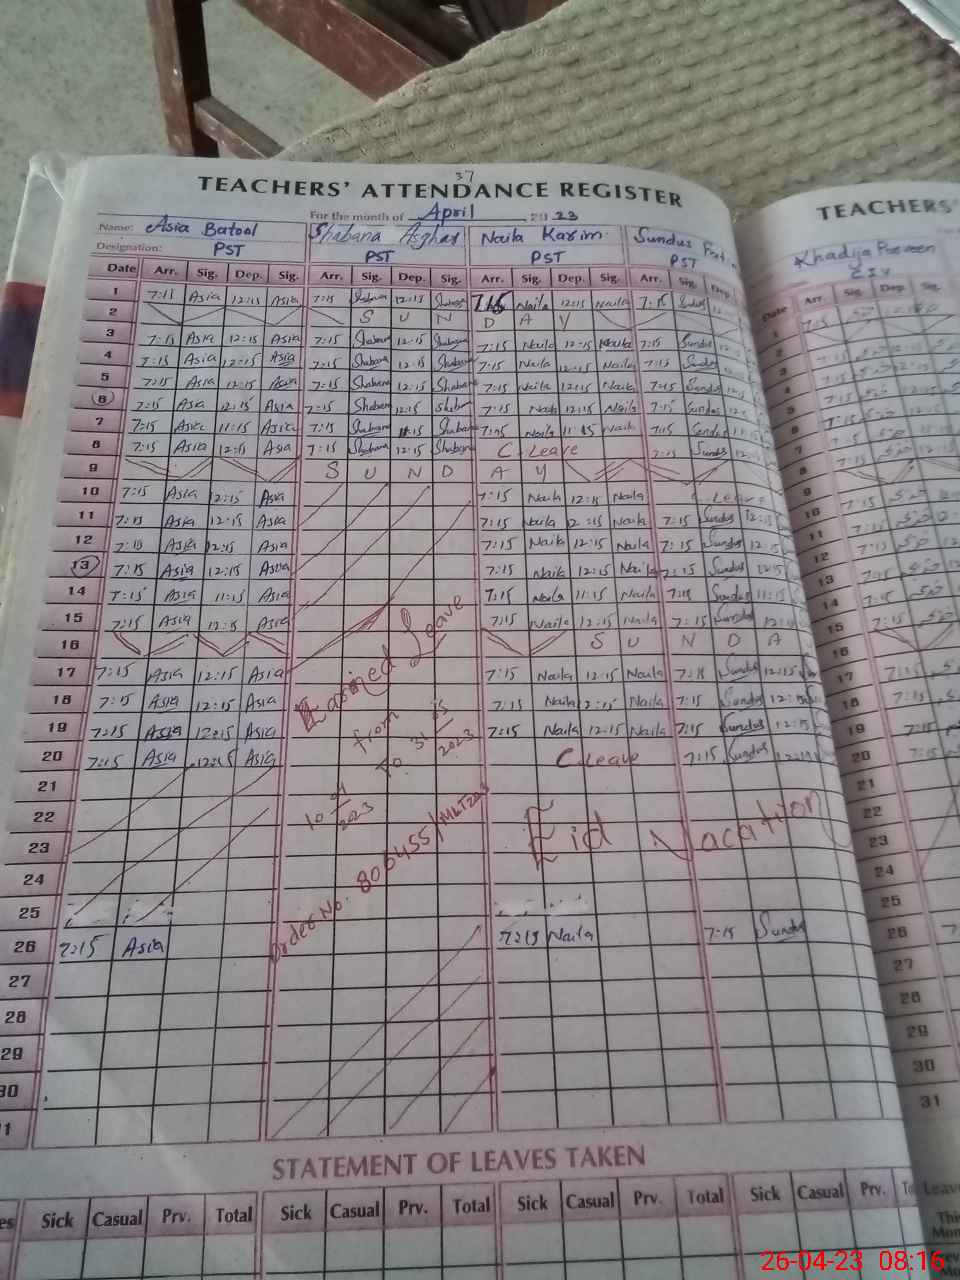 37
TEACHERS' ATTENDANCE REGISTER
For the month of April 2023
Name: Asia Batool Shabana Asghar Naila Karim Sundus
Designation: PST PST PST PST
Date Arr. Sig. Dep. Sig. Arr. Sig. Dep. Sig. Arr. Sig. Dep. Sig. Arr. Sig. Dep.
1 7:15 Asia 12:15 Asia 7:15 Shabana 12:15 Shabana 7:15 Naila 12:15 Naila 7:15 Sundus
2 S U N D A Y
3 7:15 Asia 12:15 Asia 7:15 Shabana 12:15 Shabana 7:15 Naila 12:15 Naila 7:15 Sundus
4 7:15 Asia 12:15 Asia 7:15 Shabana 12:15 Shabana 7:15 Naila 12:15 Naila 7:15 Sundus
5 7:15 Asia 12:15 Asia 7:15 Shabana 12:15 Shabana 7:15 Naila 12:15 Naila 7:15 Sundus
6 7:15 Asia 12:15 Asia 7:15 Shabana 12:15 7:15 Naila 12:15 Naila 7:15 Sundus
7 7:15 Asia 11:15 Asia 7:15 Shabana 11:15 Shabana 7:15 Naila 11:15 Naila 7:15 Sundus
8 7:15 Asia 12:15 Asia 7:15 Shabana 12:15 Shabana C Leave 7:15 Sundus
9 S U N D A Y
10 7:15 Asia 12:15 Asia 7:15 Naila 12:15 Naila C Leave
11 7:15 Asia 12:15 Asia 7:15 Naila 12:15 Naila 7:15 Sundus 12:15
12 7:15 Asia 12:15 Asia 7:15 Naila 12:15 Naila 7:15 Sundus 12:15
13 7:15 Asia 12:15 Asia 7:15 Naila 12:15 Naila 7:15 Sundus 12:15
14 7:15 Asia 11:15 Asia 7:15 Naila 11:15 Naila 7:15 Sundus 11:15
15 7:15 Asia 12:15 Asia 7:15 Naila 12:15 Naila 7:15 Sundus 12:15
16 S U N D A
17 7:15 Asia 12:15 Asia 7:15 Naila 12:15 Naila 7:15 Sundus 12:15
18 7:15 Asia 12:15 Asia 7:15 Naila 12:15 Naila 7:15 Sundus 12:15
19 7:15 Asia 12:15 Asia 7:15 Naila 12:15 Naila 7:15 Sundus 12:15
20 7:15 Asia 12:15 Asia C Leave 7:15 Sundus
Earned Leave
from 10 04 2023
To. 31 05 2023
Order No. 806455/
21
22
Eid Vacation
23
24
25
26 7:15 Asia 7:15 Naila 7:15 Sundus
27
28
29
30
STATEMENT OF LEAVES TAKEN
Sick Casual Prv. Total Sick Casual Prv. Total Sick Casual Prv. Total Sick Casual Prv.
TEACHERS'
Khadija Parveen
Date Arr. Sig. Dep. Sig.
1
2
3
4
5
6
7
8
9
10
11
12
13
14
15
16
17
18
19
20
21
22
23
24
25
26
27
28
29
30
31
26-04-23 08:16